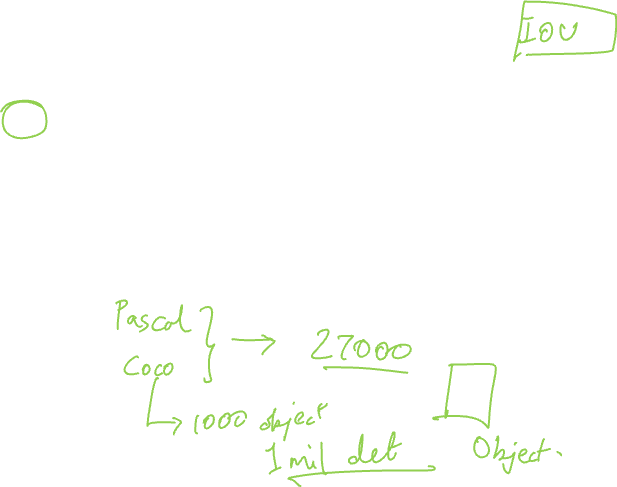 IOU
Pascal
Coco
27000
1000 object
1 mil det
Object.